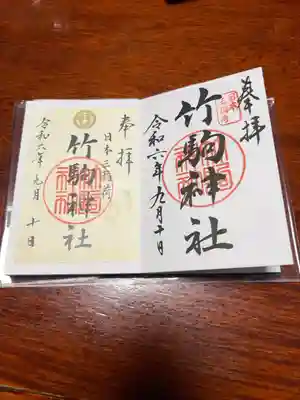 奉拝
日本三稲荷
竹駒神社
令和六年九月十日
奉拝
竹駒神社
令和六年九月十日